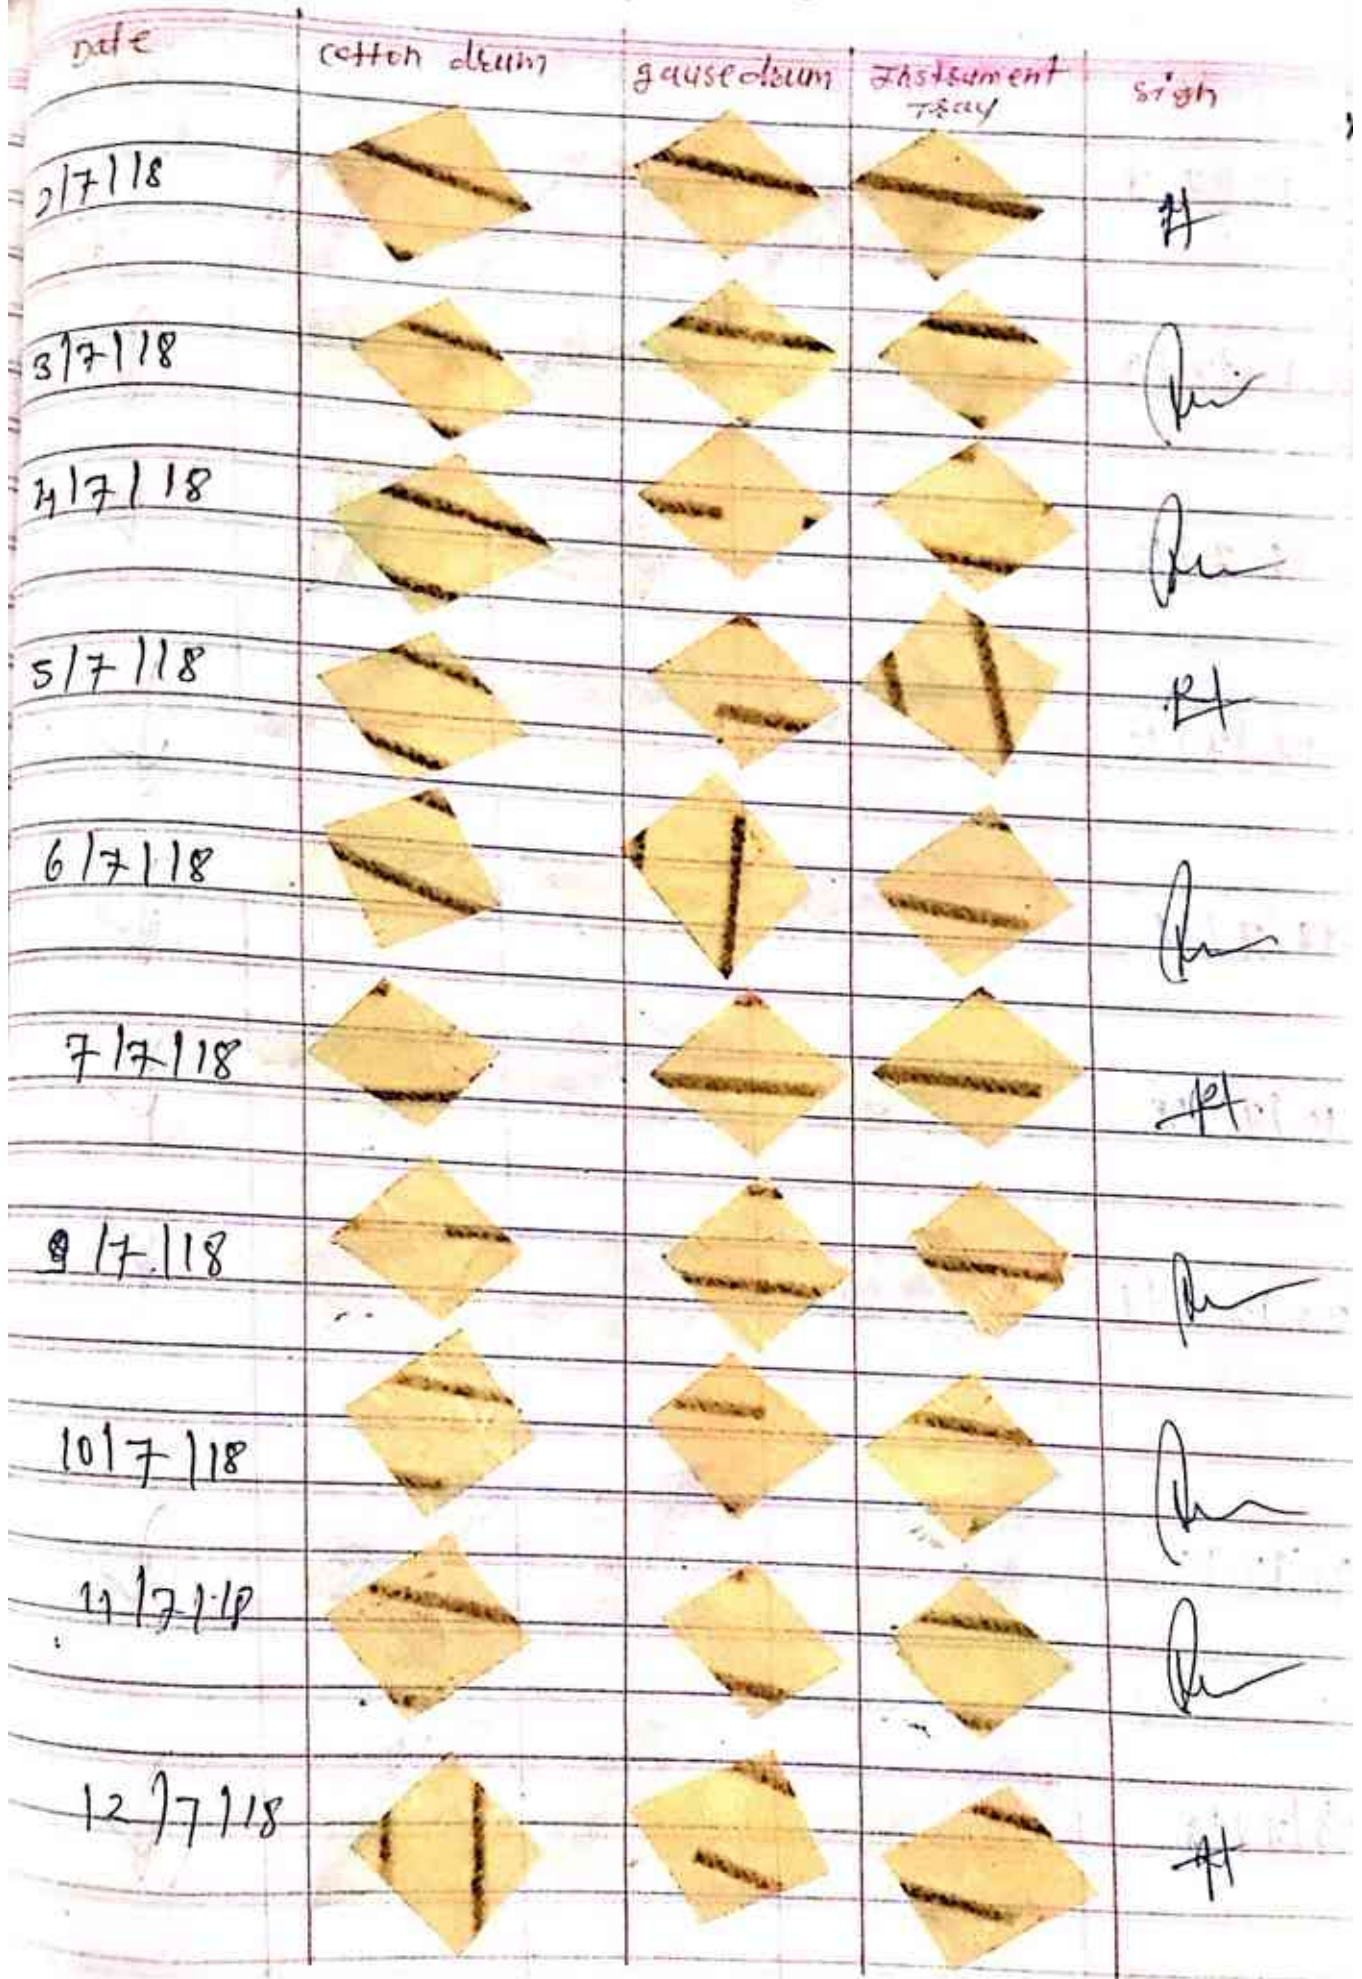 Date cotton drum gause drum Instrument Tray sign
2/7/18
3/7/18
4/7/18
5/7/18
6/7/18
7/7/18
9/7/18
10/7/18
11/7/18
12/7/18